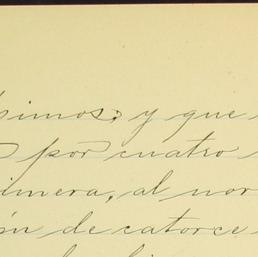 simos, y que
por cuatro
imera, al nor
ón de catorce